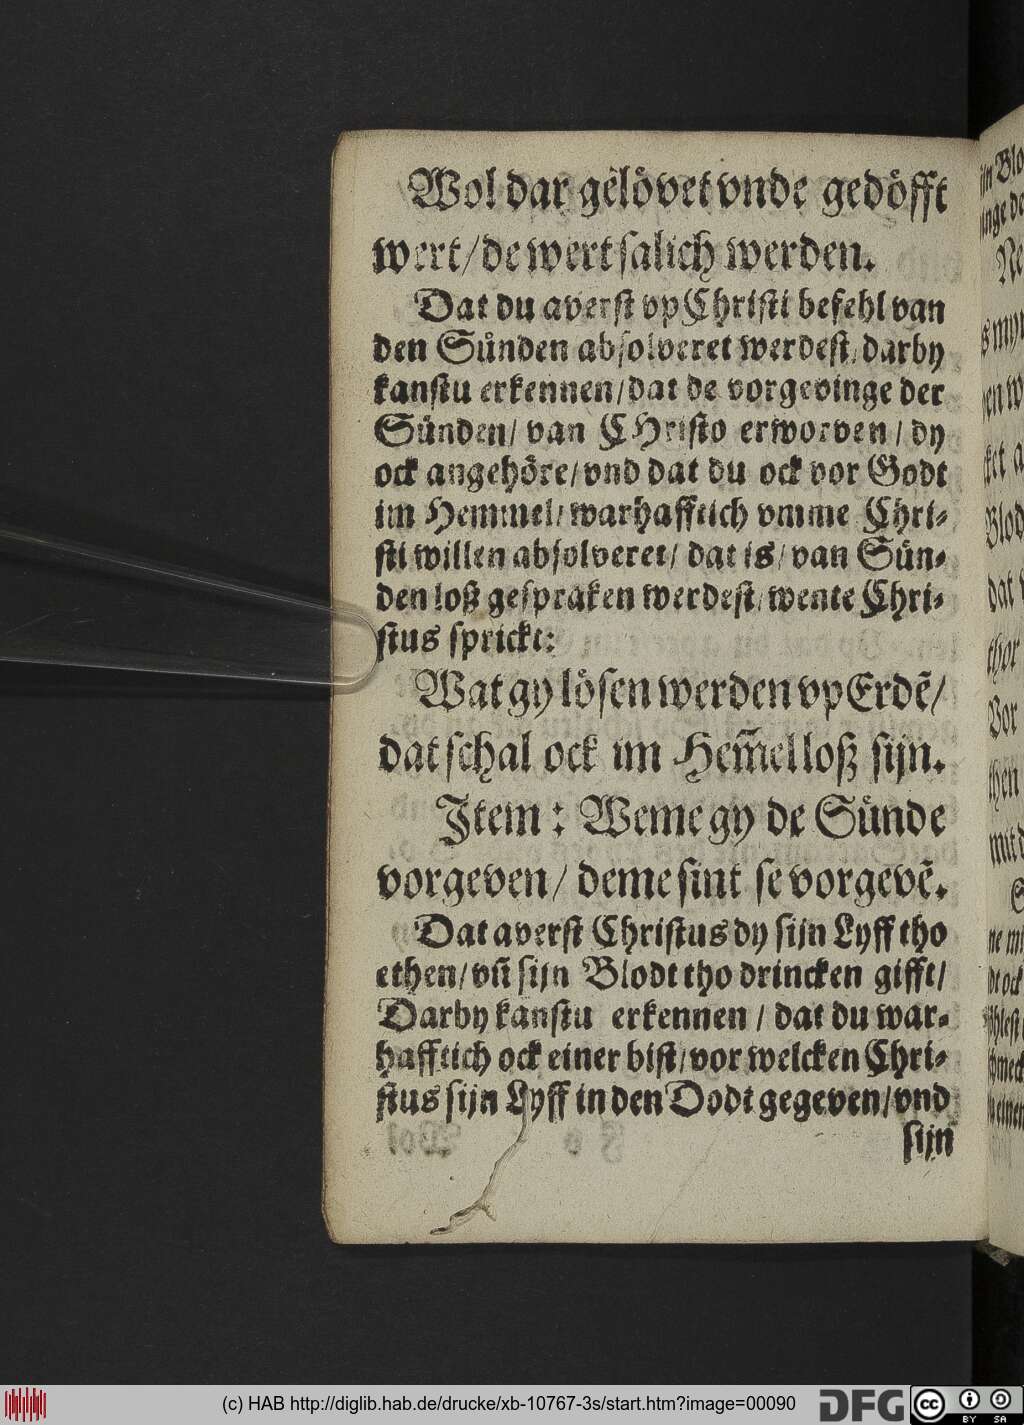 Wol dar gelövet vnde gedöfft
wert/de wert salich werden.
Dat du averst vp Christi befehl van
den Sünden absolveret werdest, darby
kanstu erkennen/dat de vorgevinge der
Sünden/ van CHristo erworven / dy
ock angehöre/vnd dat du ock vor Godt
im Hemmel/ warhafftich vmme Chri-
sti willen absolveret/ dat is/ van Sün-
den loß gespraken werdest, wente Chri-
stus sprickt:
Wat gy lösen werden vp Erdē/
dat schal ock im Hem̄el loß sijn.
Item : Weme gy de Sünde
vorgeven/ deme sint se vorgevē.
Dat averst Christus dy sijn Lyff tho
ethen/vn̄ sijn Blodt tho drincken gifft/
Darby kanstu erkennen / dat du war-
hafftich ock einer bist/vor welcken Chri-
stus sijn Lyff in den Dodt gegeven/vnd
sijn
(c) HAB http://diglib.hab.de/drucke/xb-10767-3s/start.htm?image=00090
DFG
cc
BY SA